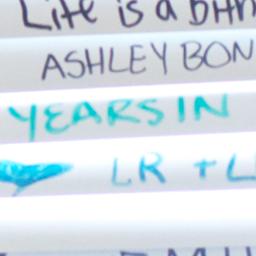 Life is a
ASHLEY BON
YEARS IN
LR + L